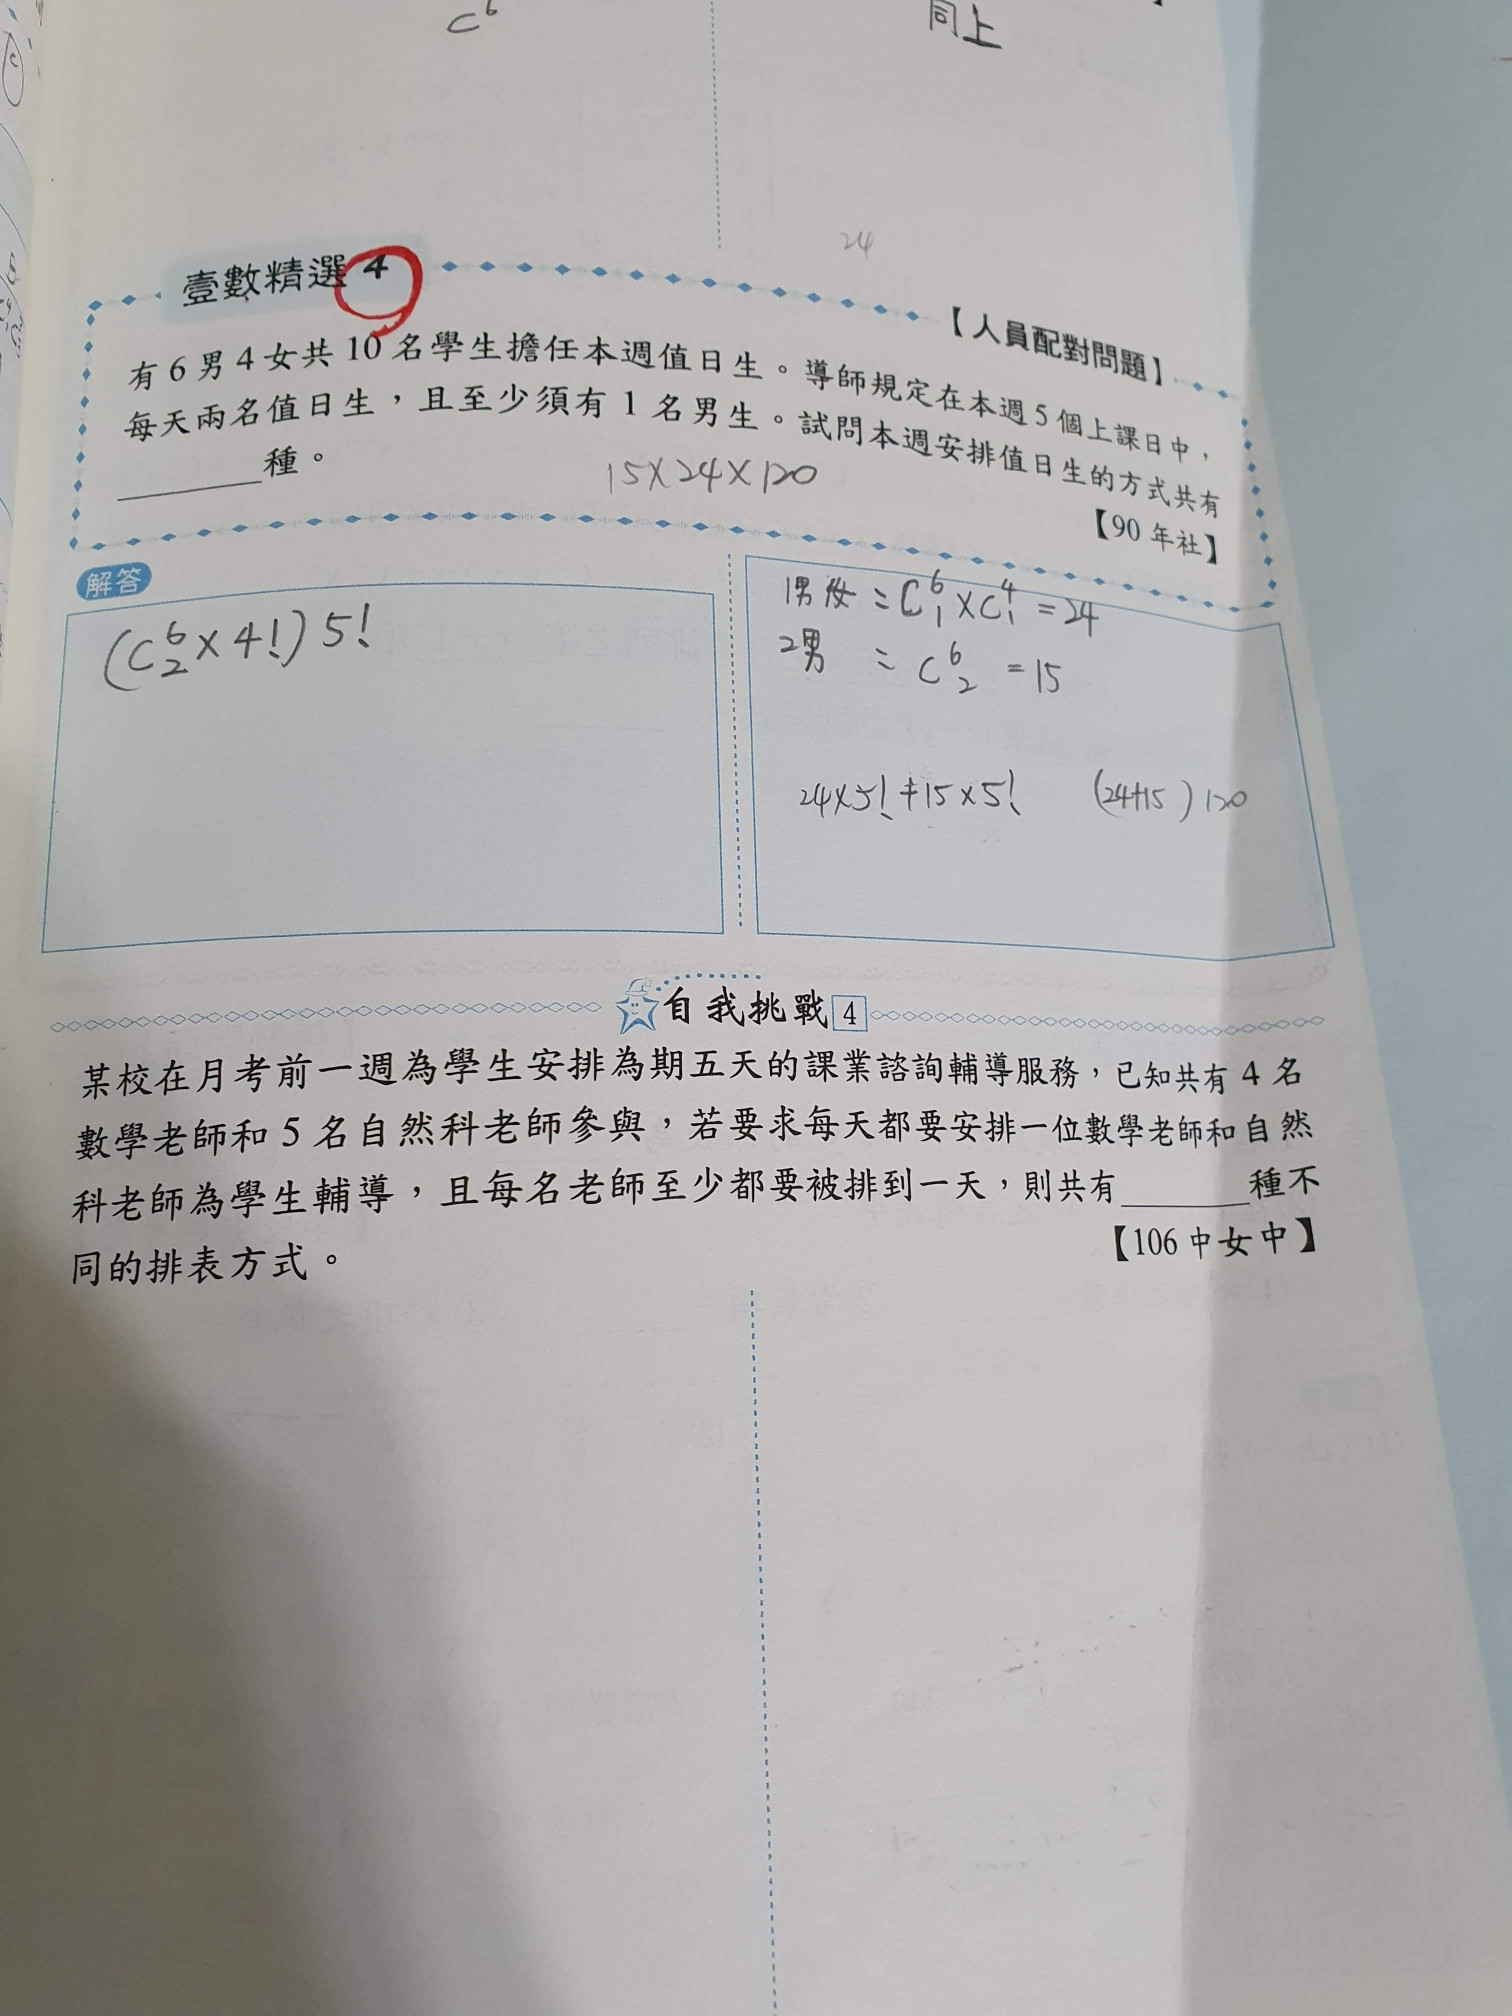 C⁶
同上
24
壹數精選 4
【人員配對問題】
有 6 男 4 女共 10 名學生擔任本週值日生。導師規定在本週 5 個上課日中，
每天兩名值日生，且至少須有 1 名男生。試問本週安排值日生的方式共有
______種。
【90 年社】
15×24×120
解答
(C⁶₂×4!)5!
1男1女 = C⁶₁×C⁴₁ = 24
2男 = C⁶₂ = 15
24×5! + 15×5! (24+15) 120
自我挑戰 4
某校在月考前一週為學生安排為期五天的課業諮詢輔導服務，已知共有 4 名
數學老師和 5 名自然科老師參與，若要求每天都要安排一位數學老師和自然
科老師為學生輔導，且每名老師至少都要被排到一天，則共有______種不
同的排表方式。
【106 中女中】